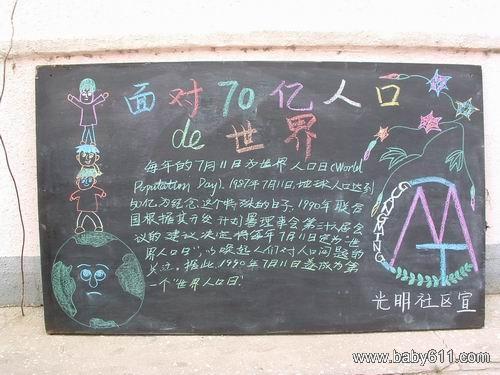 面对70亿人口
de 世界
每年的7月11日为世界人口日(World
Population Day). 1987年7月11日,地球人口达到
50亿.为纪念这个特殊的日子,1990年联合
国根据其开发计划署理事会第三十六届会
议的建议,决定将每年7月11日定为“世
界人口日”,以唤起人们对人口问题的
关注。据此,1990年7月11日遂成为第
一个“世界人口日”.
GUANGMING
光明社区宣
www.baby611.com